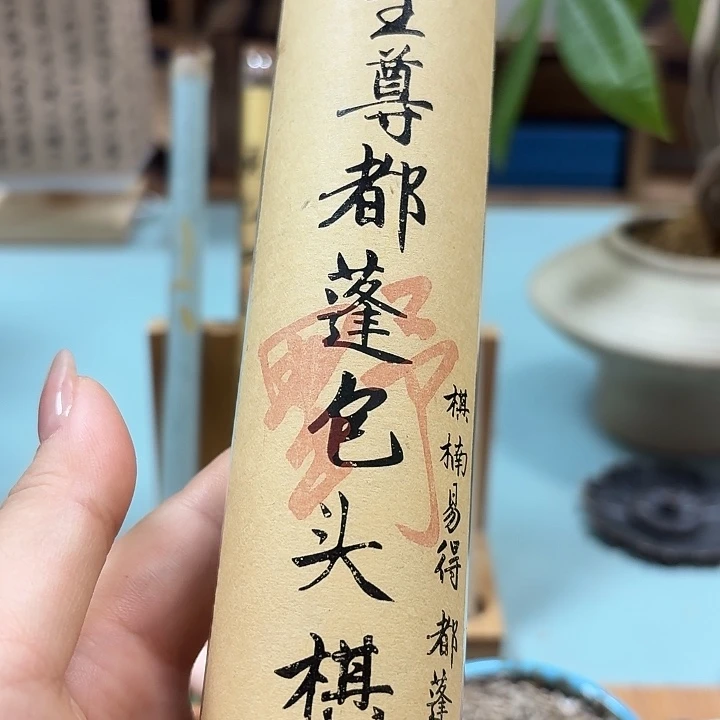 至尊都蓬包头棋
棋楠易得 都蓬
野